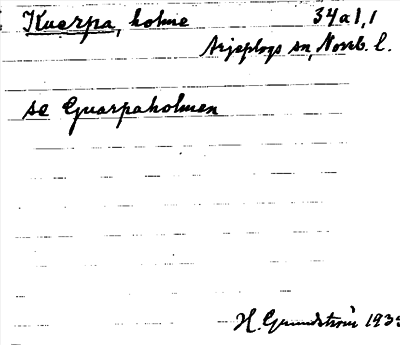 Kuarpa, holme 34a1,1
Arjeplogs sn, Norrb. l.
se Guarpaholmen
H. Grundström 193